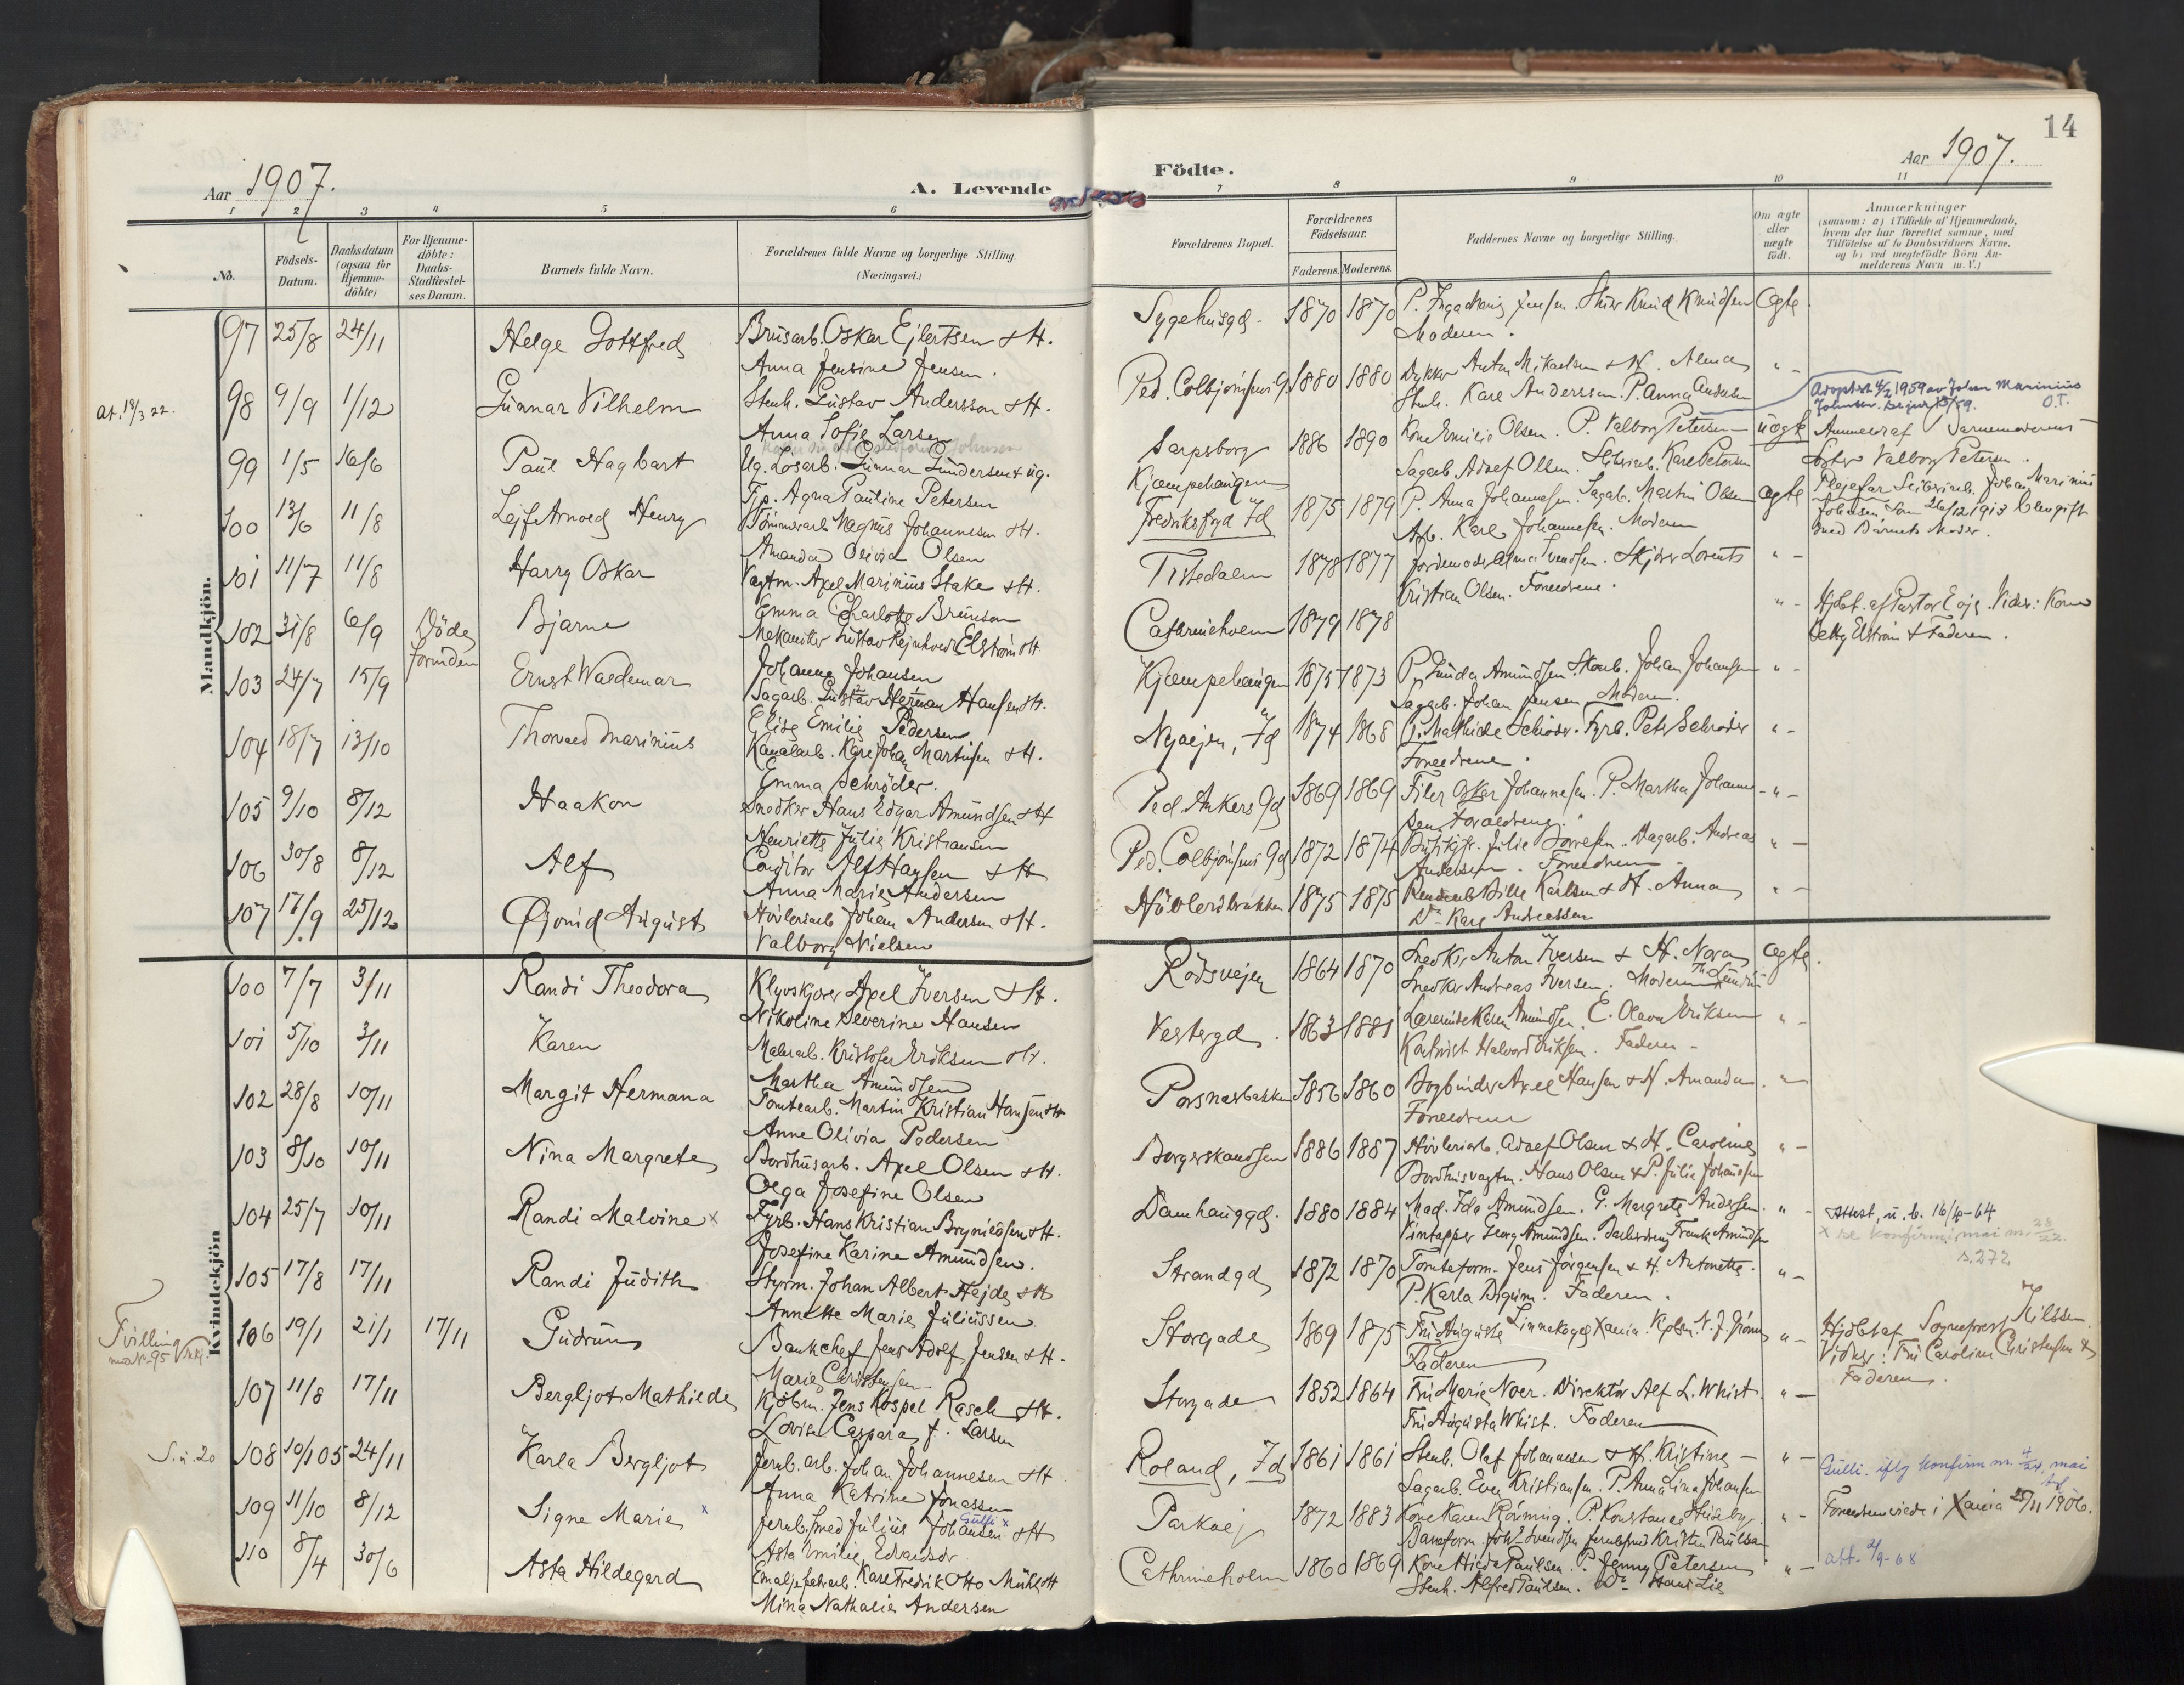 14
Aar 1907.
A. Levende
Födte.
Aar 1907.
1 2 3 4 5 6
7 8 9 10 11
No.
Födsels-Datum.
Daabsdatum (ogsaa for Hjemme-döbte)
For Hjemme-döbte: Daabs-Stadfæstel-ses Datum.
Barnets fulde Navn.
Forældrenes fulde Navne og borgerlige Stilling.
(Næringsvei.)
Forældrenes Bopæl.
Forældrenes Födselsaar.
Faderens. Moderens.
Faddernes Navne og borgerlige Stilling.
Om ægte eller uægte födt.
Anmærkninger
(saasom: a) i Tilfælde af Hjemmedaab, hvem der har forrettet samme, med Tilföielse af to Daabsvidners Navne, og b) ved uægtefödte Börn An-melderens Navn m. V.)
Mandkjön.
97 25/8 24/11 Helge Gottfred
Brusarb. Oskar Ejlertsen & H.
Anna Jensine Jensen.
Sygehusgd. 1870 1870
Knud Knudsen Ægte.
Moderen.
At. 18/3 22.
98 9/9 1/12 Gunnar Vilhelm
Stenh. Gustav Andersson & H.
Anna Sofie Larsen
Ped. Colbjörnsens G. 1880 1880
Dykker Anton Mikaelsen & H. Alma "-
Stenh. Karl Anderssen. P. Anna Andersen
99 1/5 16/6 Paul Hagbart
Ug. Losarb. Gunnar Gundersen & ug.
Tjp. Agna Pauline Petersen
Sarpsborg 1886 1890
Kjæmpehaugen
Kone Emilie Olsen. P. Valborg Petersen uægte
Sagarb. Adolf Olsen. Karl Petersen
Adoptert 4/2 1959 av Johan Marinius
O.T.
Anmeldt af Barnemoderens
Söster Valborg Petersen.
Plejefar Johan Marinius
Johnsen som 26/12 1913 blev gift
med Barnets Moder.
100 13/6 11/8 Lejf Arnold Henry
Tömmerarb. Magnus Johannesen & H.
Amanda Olivia Olsen
Fredriksfryd Id 1875 1879
P. Anna Johannesen. Sagarb. Martin Olsen ægte
Arb. Karl Johannesen. Moderen
101 11/7 11/8 Harry Oskar
Vagtm. Axel Marinius Stake & H.
Emma Charlotte Brunson
Tistedalen 1878 1877
Jordemoder Alma Svendsen. Skjöer Lorents "-
Kristian Olsen. Forældrene.
102 31/8 6/9 Döde forinden Bjarne
Mekaniker Gustav Rejnhold Elström & H.
Johanne Johansen
Cathrineholm 1879 1878 "-
Hjdbt. af Pastor Eoje. Vidner: Kone
Betty Elström & Faderen.
103 24/7 15/9 Ernst Waldemar
Sagarb. Gustav Herman Hansen & H.
Elise Emilie Pedersen
Kjæmpehaugen 1875 1873
P. Gunda Amundsen. Stenh. Johan Johansen "-
Sagarb. Johan Jensen Moderen.
104 18/7 13/10 Thorvald Marinius
Kanalarb. Karl Johan Martinsen & H.
Emma Schröder.
Nyvejen, Id 1874 1868
P. Mathilde Schröder. Fyrb. Peter Schröder "-
Forældrene.
105 9/10 8/12 Haakon
Snedker Hans Edgar Amundsen & H
Henriette Julie Kristiansen
Ped. Ankers Gd 1869 1869
Filer Oskar Johannesen. P. Martha Johanne- "-
sen. Forældrene.
106 30/8 8/12 Alf
Conditor Alf Hansen & H
Anna Marie Andersen
Ped. Colbjörnsens Gd 1872 1874
Julie Dagarb. Andreas "-
Andersen. Forældrene
107 17/9 25/12 Öjvind August
Hövleriarb. Johan Andersen & H.
Valborg Nielsen
Hövleribakken 1875 1875
Karlsen & H. Anna "-
Do Karl Andreassen
Kvindekjön
100 7/7 3/11 Randi Theodora
Klyvskjærer Axel Iversen & H.
Nikoline Severine Hansen
Rödsvejen 1864 1870
Snedker Anton Iversen & H. Nora ægte.
Snedker Andreas Iversen. Moderen
101 5/10 3/11 Karen
Malerarb. Kristofer Eriksen & H.
Martha Amundsen
Vestergd. 1863 1881
Lærerinde Karen Amundsen. E. Olava Eriksen "-
Halvord Eriksen. Faderen-
102 28/8 10/11 Margit Hermana
Tomtearb. Martin Kristian Hansen & H
Anne Olivia Pedersen
Porsnesbakken 1856 1860
Bogbinder Axel Hansen & H. Amanda. "-
Forældrene
103 8/10 10/11 Nina Margrete
Bordhusarb. Axel Olsen & H.
Olga Josefine Olsen
Borgerskandsen 1886 1887
Hövleriarb. Adolf Olsen & H. Caroline "-
Bordhusvagtm. Hans Olsen & P. Julie Johansen
104 25/7 10/11 Randi Malvine x
Fyrb. Hans Kristian Brynildsen & H.
Josefine Karine Amundsen.
Damhauggd. 1880 1884
Mad. Ida Amundsen. G. Margrete Andersen. "-
Vintapper Georg Amundsen. Frank Amundsen
Attest, u. b. 16/4-64
x se konfirm. mai nr. 28/22.
s. 272
105 17/8 17/11 Randi Judith
Styrm. Johan Albert Hejde & H
Annette Marie Juliussen
Strandgd 1872 1870
Tomteform. Jens Jörgensen & H. Antonette. "-
P. Karla Faderen.
Tvilling
med Nr. 95 Mkj.
106 19/1 21/1 17/11 Gudrun
Bankchef Jens Adolf Jensen & H.
Marie Christensen
Storgade 1869 1875
Fru Auguste Linnekogel Xania. Kjöbm. N. J. Grönn "-
Faderen
Hjdbt af Sogneprest Nilssen.
Vidner: Fru Caroline Christensen &
Faderen.
107 11/8 17/11 Bergljot Mathilde
Kjöbm. Jens Kospel Rasch & H.
Lovise Caspara f. Larsen
Storgade 1852 1864
Fru Marie Noer. Direktör Alf L. Whist. "-
Fru Augusta Whist. Faderen
S. u. 20
108 10/1 05 24/11 Karla Bergljot
Jernb. arb. Johan Johannesen & H
Anna Katrine Jonassen
Roland, Id 1861 1861
Stenh. Olaf Johannesen & H. Kristine - "-
Sagarb. Even Kristiansen. P. Anna Lina Johansen
109 11/10 8/12 Signe Marie x
Jernb. smed Julius Johansen & H
Gulli x
Asta Emilie Edvardsdr.
Parkvej 1872 1883
Kone Karen Rönning. P. Konstance Huseby. "-
Kristen Paulsen
Gulli. iflg konfirm nr. 4/24, mai
Forældrene viede i Xania 25/11 1906.
110 8/4 30/6 Asta Hildegard
Emaljefabarb. Karl Fredrik Otto Mühl & H
Mina Nathalie Andersen
Cathrineholm 1860 1869
Kone Hilda Paulsen. P. Jenny Petersen "-
Stenh. Alfred Paulsen. Do Hans Lie
att. 2/9-68